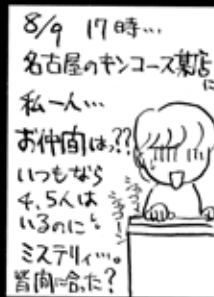 8/9 17時…
名古屋のキンコーズ某店に
私一人…
お仲間は??
いつもなら
4、5人は
いるのに!
ミステリィ…。
皆間に合った?